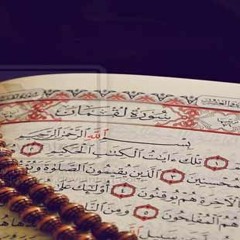 سُورَةُ لُقْمَان
بِسْمِ اللَّهِ الرَّحْمَٰنِ الرَّحِيمِ
١ تِلْكَ ءَايَٰتُ الْكِتَٰبِ الْحَكِيمِ ٢
مُحْسِنِينَ ٣ الَّذِينَ يُقِيمُونَ الصَّلَوٰةَ وَ
اخِرَةِ هُمْ يُوقِنُونَ ٤ أُولَٰئِكَ عَلَىٰ
هُمُ الْمُفْلِحُونَ ٥ وَمِنَ النَّا